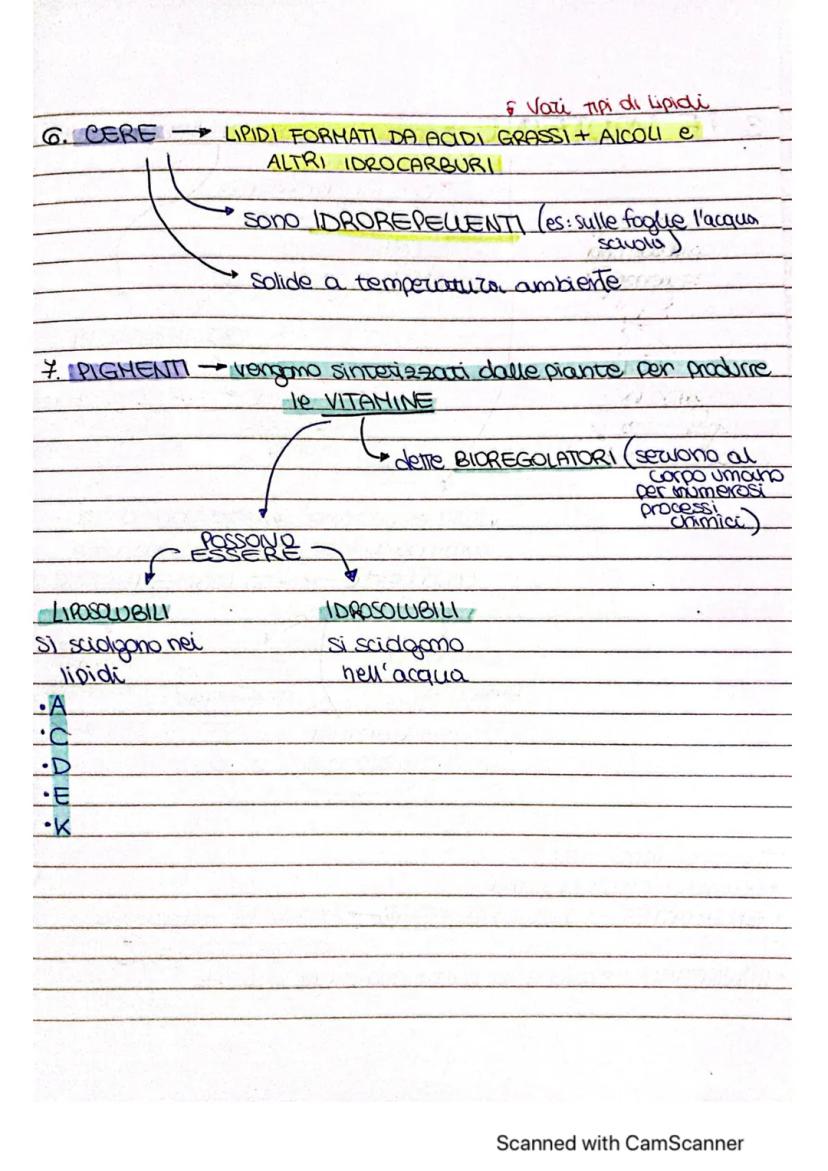 ↯ Vari tipi di lipidi
6. CERE → LIPIDI FORMATI DA ACIDI GRASSI + ALCOLI e
ALTRI IDROCARBURI
sono IDROREPELLENTI (es: sulle foglie l'acqua
scivola)
solide a temperatura ambiente
7. PIGMENTI → vengono sintetizzati dalle piante per produrre
le VITAMINE
dette BIOREGOLATORI (servono al
corpo umano
per numerosi
processi
chimici)
POSSONO
ESSERE
LIPOSOLUBILI IDROSOLUBILI
si sciolgono nei si sciolgono
lipidi nell'acqua
• A
• C
• D
• E
• K
Scanned with CamScanner